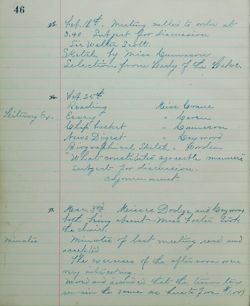 46
Feb. 18th. Meeting called to order at
3.40 Subject for discussion
Sir Walter Scott.
Sketch by Miss Cameron
Selections from Lady of the Lake.
Feb. 25th
Literary Ex.
Reading Miss
Essay "
Chip basket " Cameron
News Digest "
Biographical Sketch "
What constitutes agreeable manners
subject for discussion.
Adjournment
Mar. 3rd. Misses Dodge and
both being absent Miss took
the chair.
Minutes
Minutes of last meeting read and
accepted.
The exercises of the afternoon were
very interesting.
Moved and seconded that the
remain the same as